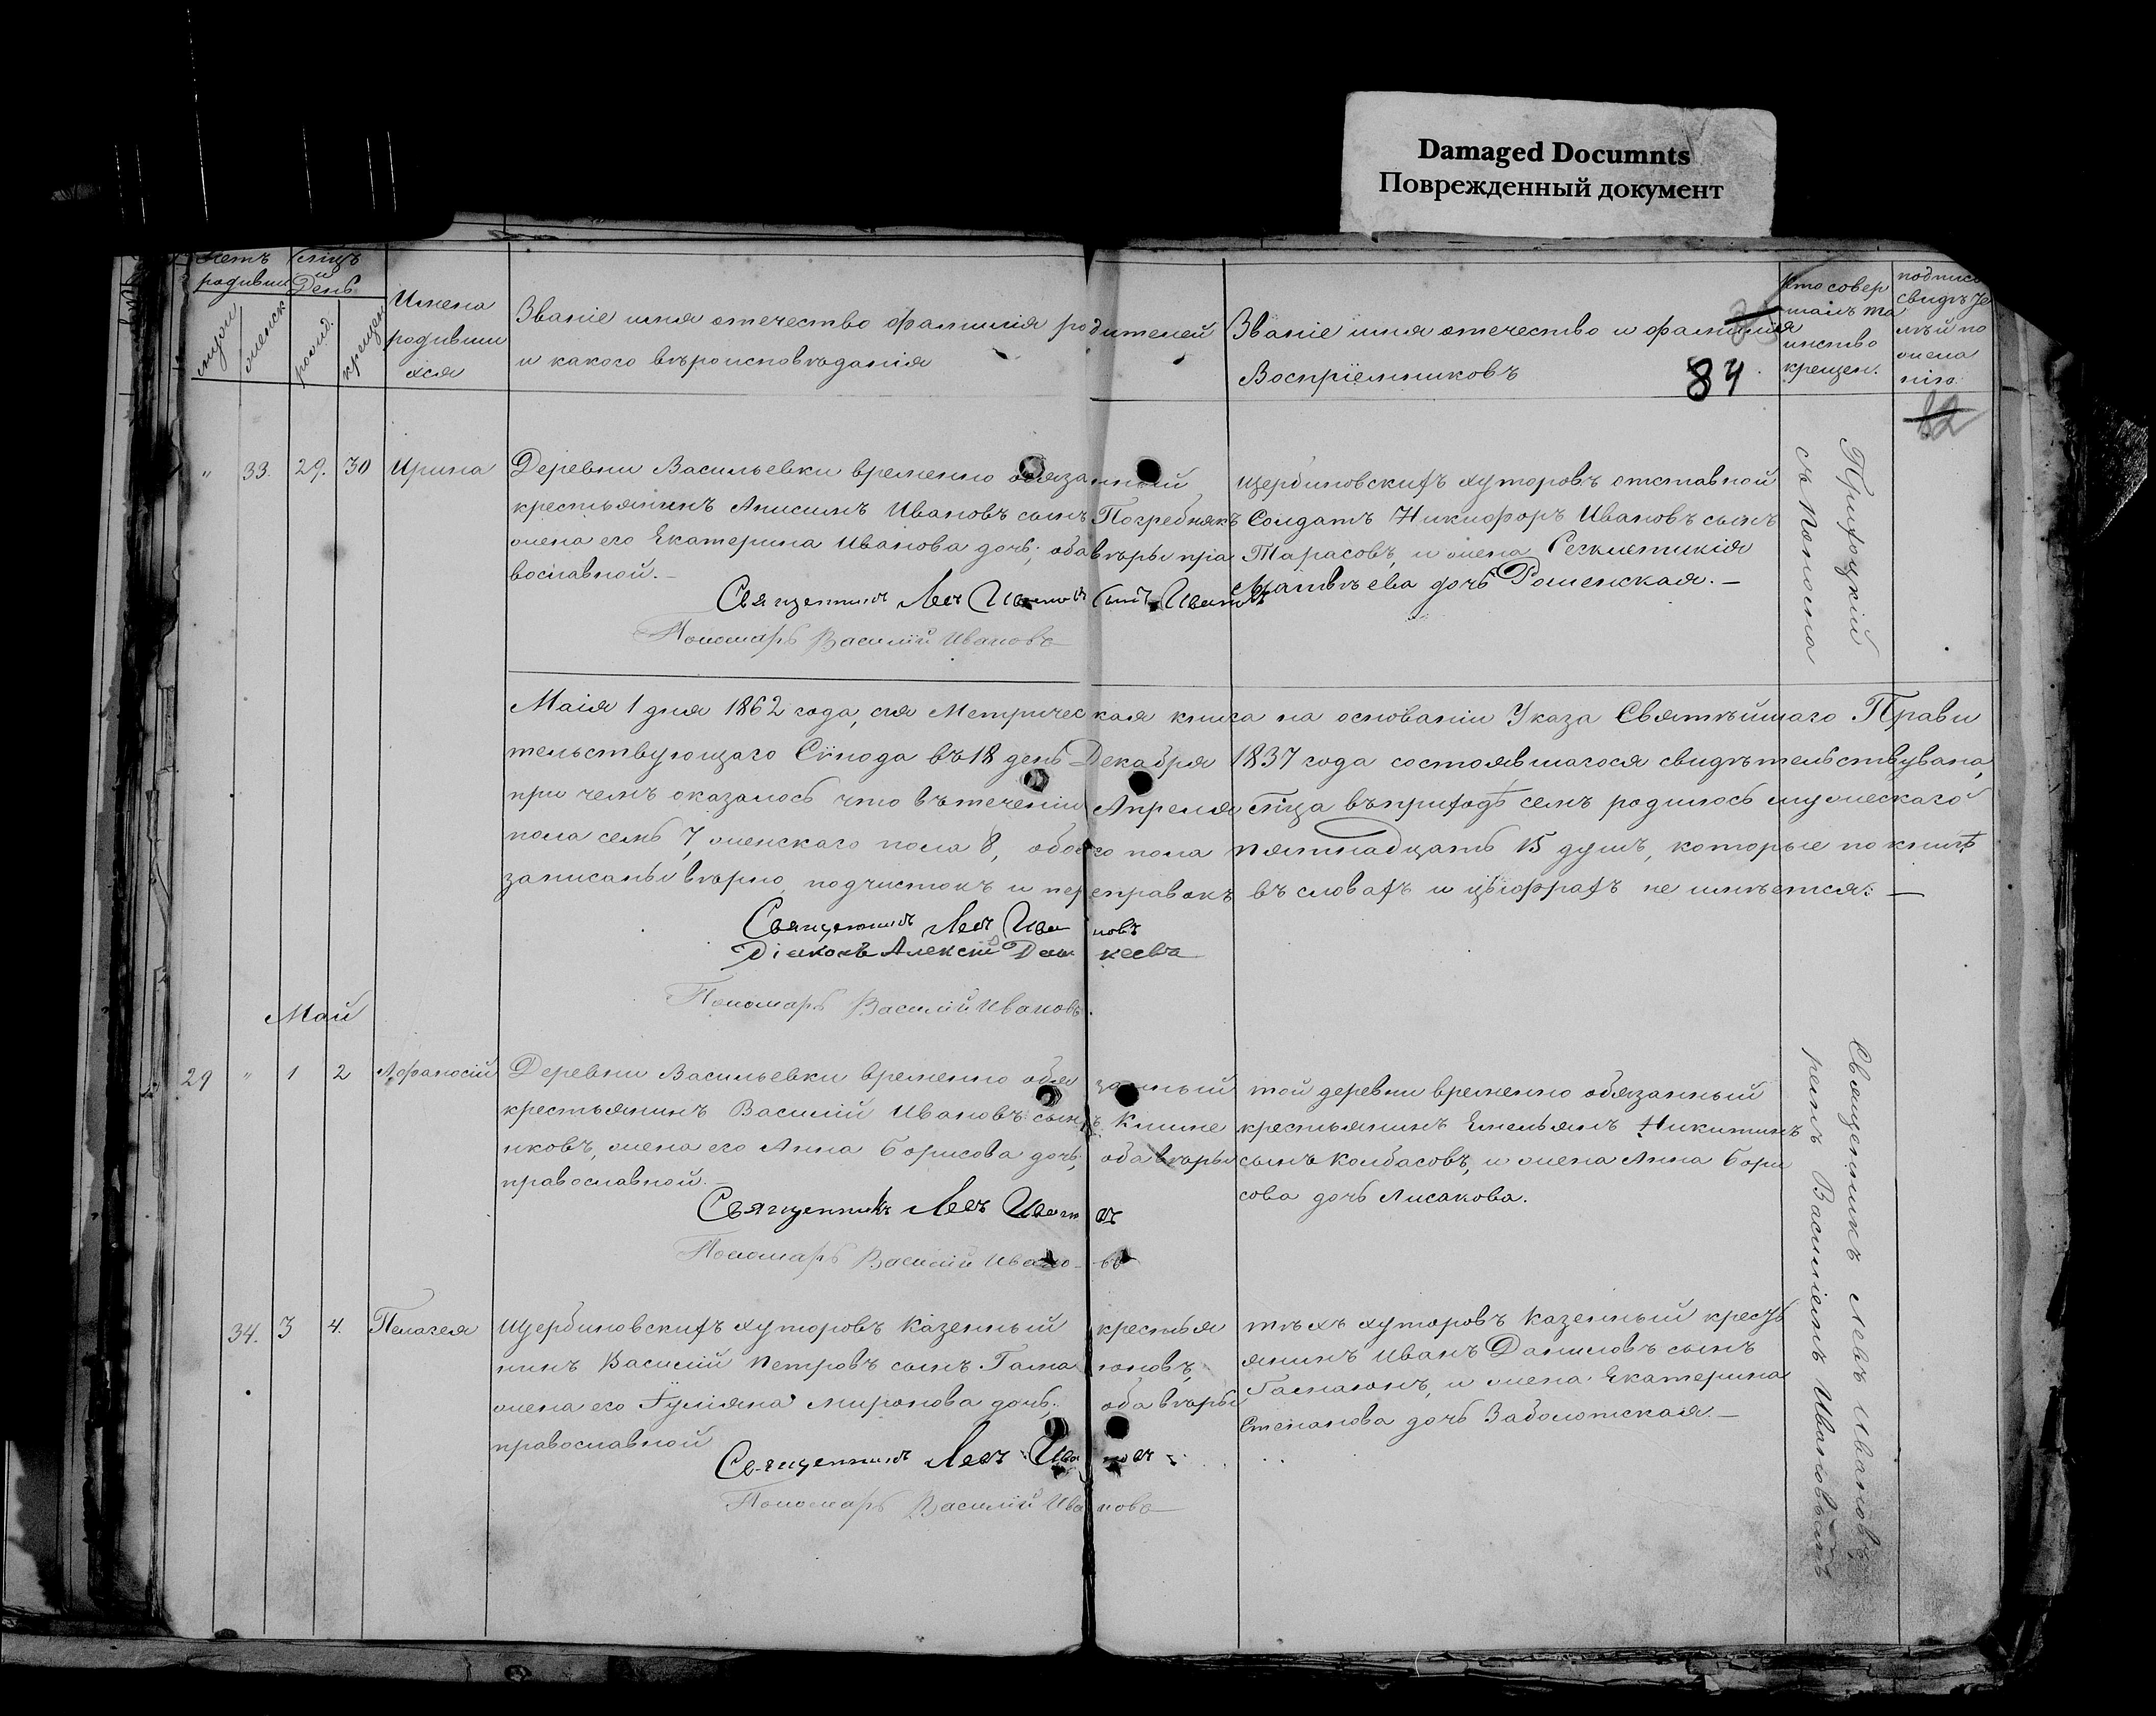 Damaged Documnts
Поврежденный документ
родивши
День
мужск
женск
рожд.
крещен
Имена
родивши
хся
Званіе имя отечество фамилія родителей
и какого вѣроисповѣданія
Званіе имя отечество и фамилия
Воспріемниковъ
84
Кто совер
шалъ та
инство
крещен.
подпись
свидѣте
лѣй по
жела
нію.
82
" 33. 29. 30 Ирина
Деревни Васильевки временно обязанный
крестьянинъ Анисимъ Ивановъ сынъ Погребнякъ
жена его Екатерина Иванова дочь; оба вѣры пра
вославной.—
Священникъ Левъ Ивановъ сынъ Ивановъ
Пономарь Василій Ивановъ
Щербиновскихъ хуторовъ отставной
Солдатъ Никифоръ Ивановъ сынъ
Тарасовъ, и жена
Матвѣева дочь Роменская.—
Маія 1 дня 1862 года, сія Метрическая книга на основаніи Указа Святѣйшаго Прави
тельствующаго Сѵнода въ 18 день Декабря 1837 года состоявшагося свидѣтельствувана,
при чемъ оказалось что въ теченіи Апреля мѣца въ приходѣ семъ родилось мужескаго
пола семь 7, женскаго пола 8, обоего пола пятнадцать 15 душъ, которые по книгѣ
записаны вѣрно, подчистокъ и переправокъ въ словахъ и цыфрахъ не имѣется:—
Священникъ Левъ Ивановъ
Діаконъ Алексій
Пономарь Василій Ивановъ.
Май
29 " 1 2 Афанасій
Деревни Васильевки временно обязанный
крестьянинъ Василій Ивановъ сынъ Климе
нковъ, жена его Анна Борисова дочь; оба вѣры
православной.—
Священникъ Левъ Ивановъ
Пономарь Василій Ивановъ
той деревни временно обязанный
крестьянинъ Емельянъ Никитинъ
сынъ Колбасовъ, и жена Анна Бори
сова дочь Лисакова.
34. 3 4. Пелагея
Щербиновскихъ хуторовъ Казенный крестья
нинъ Василій Петровъ сынъ Гама юновъ,
жена его Гуліяна Миронова дочь; оба вѣры
православной
Священникъ Левъ Ивановъ
Пономарь Василій Ивановъ
тѣхъ хуторовъ Казенный кресть
янинъ Иванъ Даниловъ сынъ
Гамаюнъ, и жена Екатерина
Степанова дочь Заболотская.—
Священникъ Левъ Ивановъ,
Василіемъ Ивановымъ